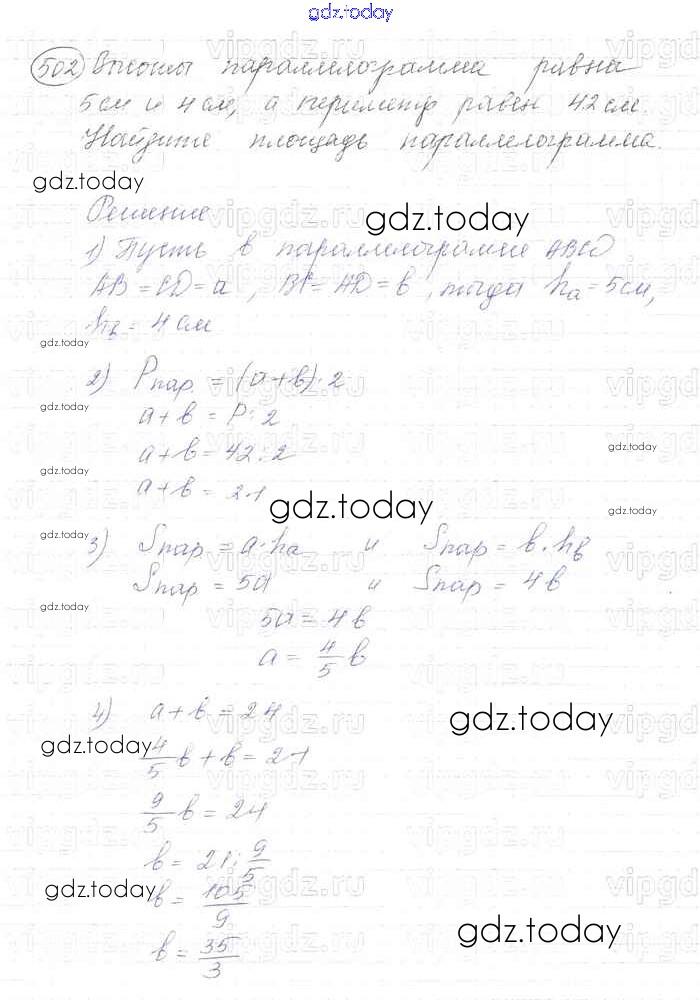 gdz.today
502 Высоты параллелограмма равна
5 см и 4 см, а периметр равен 42 см.
Найдите площадь параллелограмма.
gdz.today
Решение
gdz.today
1) Пусть в параллелограмме ABCD
AB = CD = a, BC = AD = b, тогда hₐ = 5 см,
h_b = 4 см
gdz.today
2) Pпар. = (a + b) · 2
gdz.today
a + b = P : 2
a + b = 42 : 2
gdz.today
gdz.today
a + b = 21
gdz.today
gdz.today
gdz.today
3) Sпар = a · hₐ и Sпар = b · h_b
Sпар = 5a и Sпар = 4b
gdz.today
5a = 4b
a = 4/5 b
4) a + b = 21
gdz.today
gdz.today
4/5 b + b = 21
9/5 b = 21
b = 21 : 9/5
gdz.today
b = 105/9
gdz.today
b = 35/3
vipgdz.ru